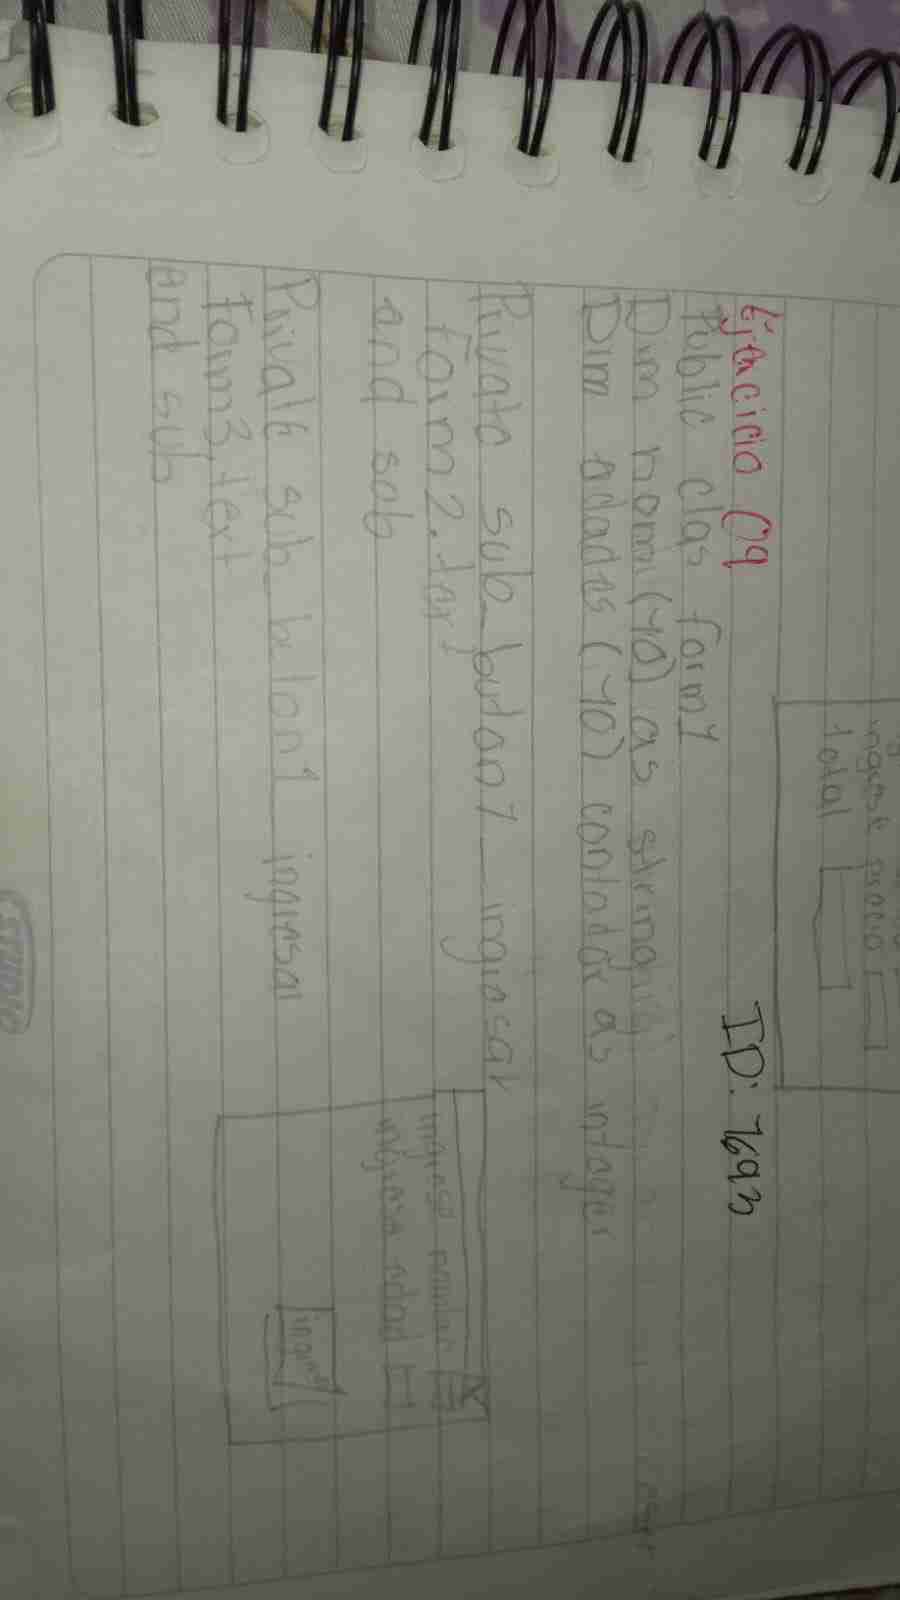 ingrese precio
total
Ejercicio 09 ID: 7693
Public clas form1
Dim nomm (40) as string
Dim edades (40) contador as intager
Privato sub_butan1_ingresar
form2.text
and sub
Privale sub_belon1 ingresar
form3.text
and sub
ingrese nombre
ingrese edad
ingresar
STUDIO